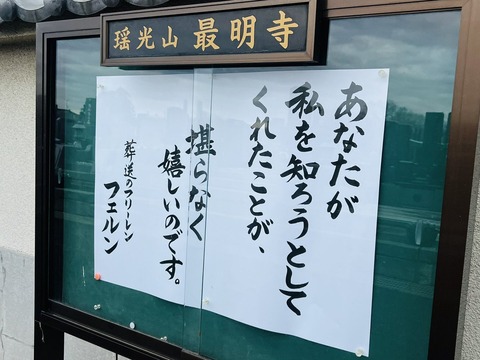 瑶光山 最明寺
あなたが
私を知ろうとして
くれたことが、
堪らなく
嬉しいのです。
葬送のフリーレン
フェルン